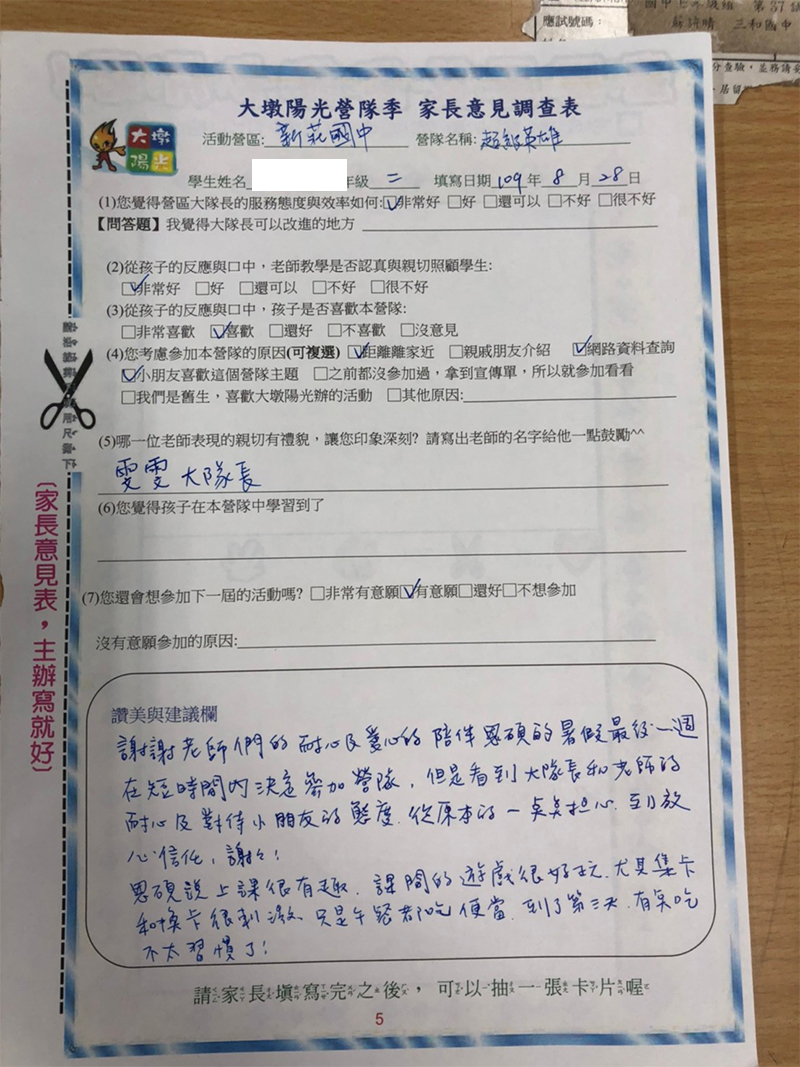 國中七年級組 第37試
應試號碼：
三和國中
分查驗，並務請妥
大墩陽光營隊季 家長意見調查表
大墩
陽光
活動營區: 新莊國中 營隊名稱: 超級英雄
學生姓名 年級 二 填寫日期 109 年 8 月 28 日
(1)您覺得營區大隊長的服務態度與效率如何:☑非常好 □好 □還可以 □不好 □很不好
【問答題】我覺得大隊長可以改進的地方
(2)從孩子的反應與口中，老師教學是否認真與親切照顧學生:
☑非常好 □好 □還可以 □不好 □很不好
(3)從孩子的反應與口中，孩子是否喜歡本營隊:
□非常喜歡 ☑喜歡 □還好 □不喜歡 □沒意見
(4)您考慮參加本營隊的原因(可複選) ☑距離離家近 □親戚朋友介紹 ☑網路資料查詢
☑小朋友喜歡這個營隊主題 □之前都沒參加過，拿到宣傳單，所以就參加看看
□我們是舊生，喜歡大墩陽光辦的活動 □其他原因:
(5)哪一位老師表現的親切有禮貌，讓您印象深刻? 請寫出老師的名字給他一點鼓勵^^
雯雯大隊長
(6)您覺得孩子在本營隊中學習到了
(7)您還會想參加下一屆的活動嗎? □非常有意願☑有意願□還好□不想參加
沒有意願參加的原因:
讚美與建議欄
謝謝老師們的耐心及愛心的陪伴恩碩的暑假最後一週
在短時間內決定參加營隊，但是看到大隊長和老師的
耐心及對待小朋友的態度，從原本的一點點担心，到放
心信任，謝謝！
恩碩說上課很有趣，課間的遊戲很好玩，尤其集卡
和換卡很刺激，只是午餐都吃便當，到了第三天，有點吃
不太習慣了！
請家長填寫完之後，可以抽一張卡片喔
5
〔家長意見表，主辦寫就好〕